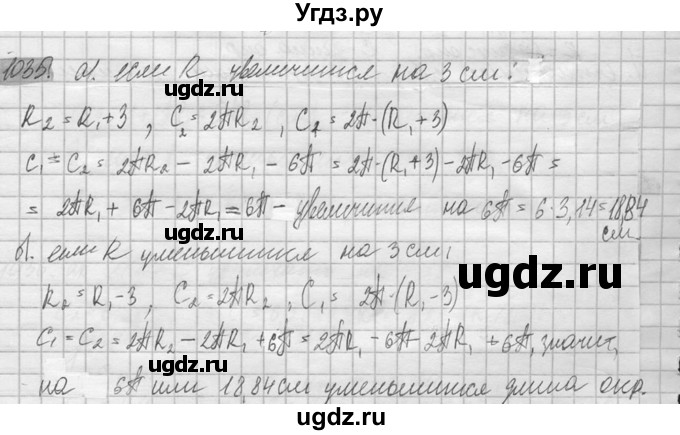 Угдз.ру
1035. а). если R увеличится на 3 см:
R₂ = R₁+3 , C₂ = 2πR₂ , C₂ = 2π·(R₁+3)
C₁ = C₂ = 2πR₂ − 2πR₁ − 6π = 2π·(R₁+3)−2πR₁−6π =
= 2πR₁ + 6π −2πR₁ = 6π − увеличится на 6π = 6·3,14=18,84
см.
б). если R уменьшится на 3 см,
R₂ = R₁−3 , C₂=2πR₂ , C₁ = 2π·(R₁−3)
C₁ = C₂ = 2πR₂ − 2πR₁ +6π = 2πR₁ −6π−2πR₁ +6π, значит,
на 6π или 18,84см уменьшится длина окр.
ugdz.ru ugdz.ru
ugdz.ru ugdz.ru
ugdz.ru ugdz.ru
ugdz.ru